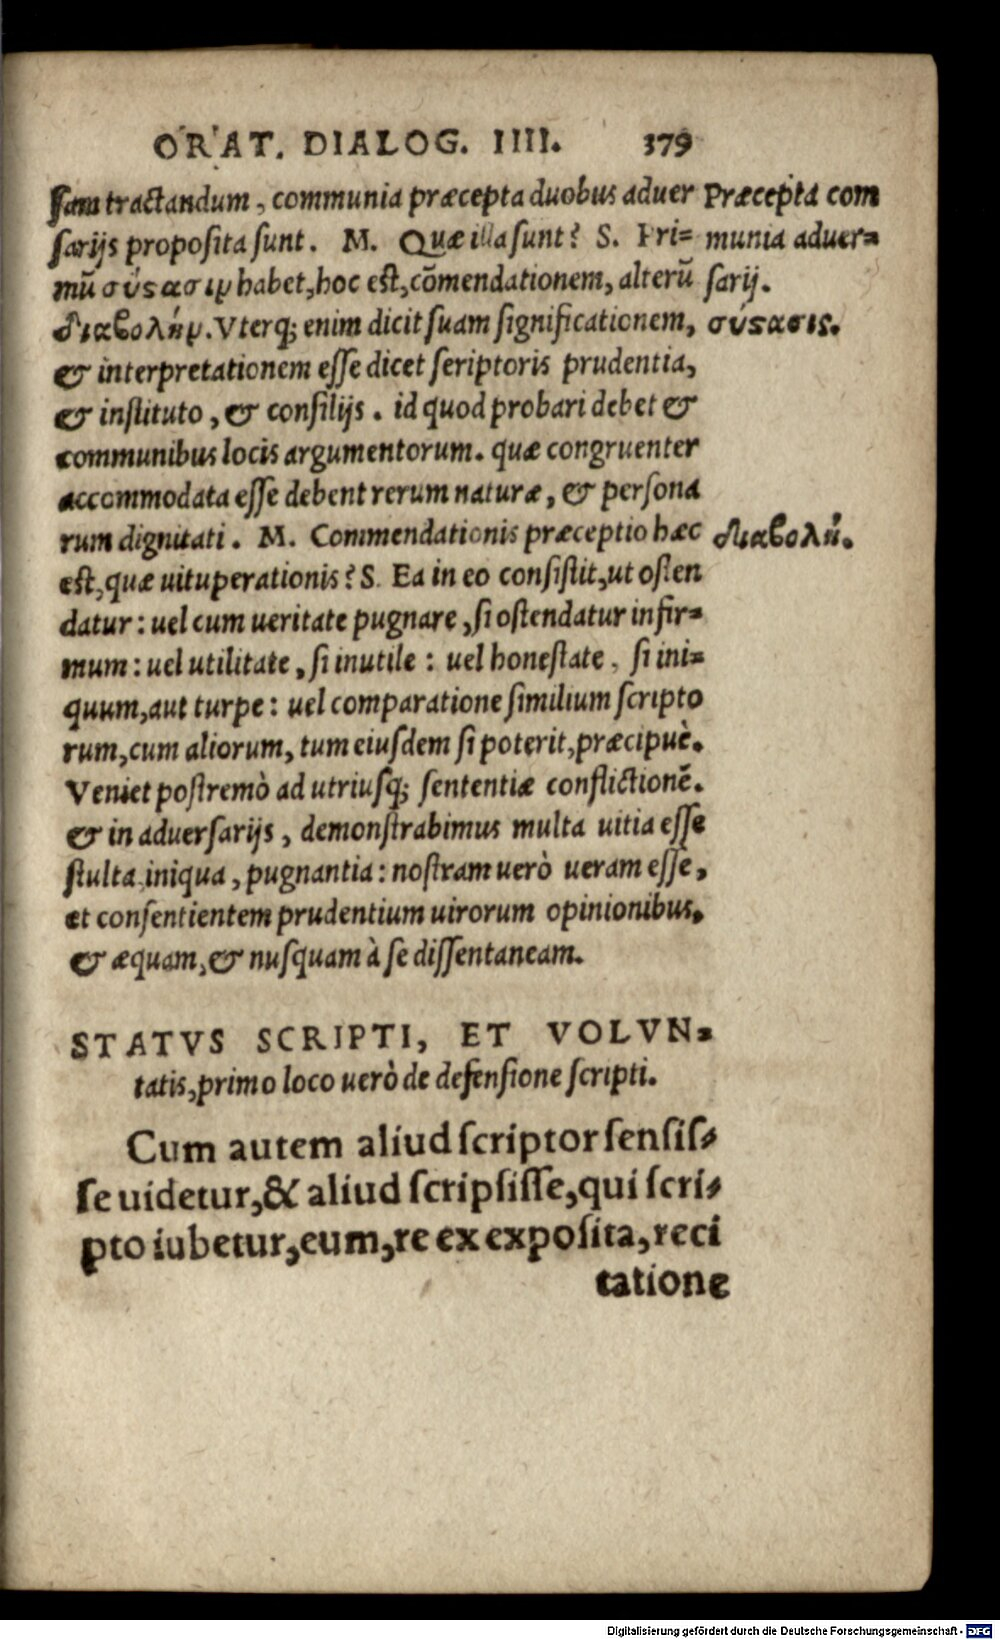 ORAT. DIALOG. IIII. 379
ſam tractandum, communia præcepta duobus aduer
ſarijs propoſita ſunt. M. Quæ illa ſunt? S. Pri=
mũ σύϛασιμ habet, hoc eſt, cõmendationem, alterũ
διαβολήμ. Vterq; enim dicit ſuam ſignificationem,
& interpretationem eſſe dicet ſcriptoris prudentia,
& inſtituto, & conſilijs. id quod probari debet &
communibus locis argumentorum. quæ congruenter
accommodata eſſe debent rerum naturæ, & perſona
rum dignitati. M. Commendationis præceptio hæc
eſt, quæ uituperationis? S. Ea in eo conſiſtit, ut oſten
datur: uel cum ueritate pugnare, ſi oſtendatur infir=
mum: uel utilitate, ſi inutile: uel honeſtate, ſi ini=
quum, aut turpe: uel comparatione ſimilium ſcripto
rum, cum aliorum, tum eiuſdem ſi poterit, præcipuè.
Veniet poſtremò ad utriuſq; ſententiæ conflictionẽ.
& in aduerſarijs, demonſtrabimus multa uitia eſſe
ſtulta, iniqua, pugnantia: noſtram uerò ueram eſſe,
et conſentientem prudentium uirorum opinionibus,
& æquam, & nuſquam à ſe diſſentaneam.
Præcepta com
munia aduer=
ſarij.
σύϛασις.
διαβολή.
STATVS SCRIPTI, ET VOLVN=
tatis, primo loco uerò de defenſione ſcripti.
Cum autem aliud ſcriptor ſenſiſ=
ſe uidetur, & aliud ſcripſiſſe, qui ſcri=
pto iubetur, eum, re ex expoſita, reci
tatione
Digitalisierung gefördert durch die Deutsche Forschungsgemeinschaft - DFG